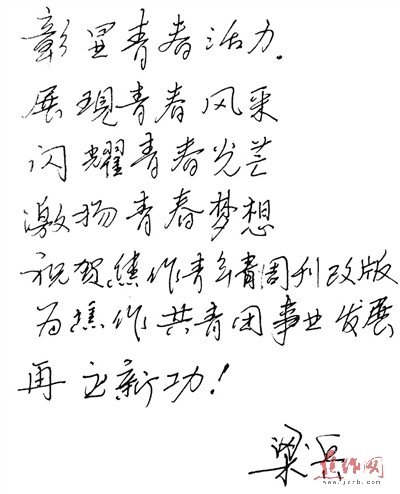 彰显青春活力.
展现青春风采
闪耀青春光芒
激扬青春梦想
祝贺焦作青年周刊改版
为焦作共青团事业发展
再立新功!
梁兵
焦作网
www.jzrb.com